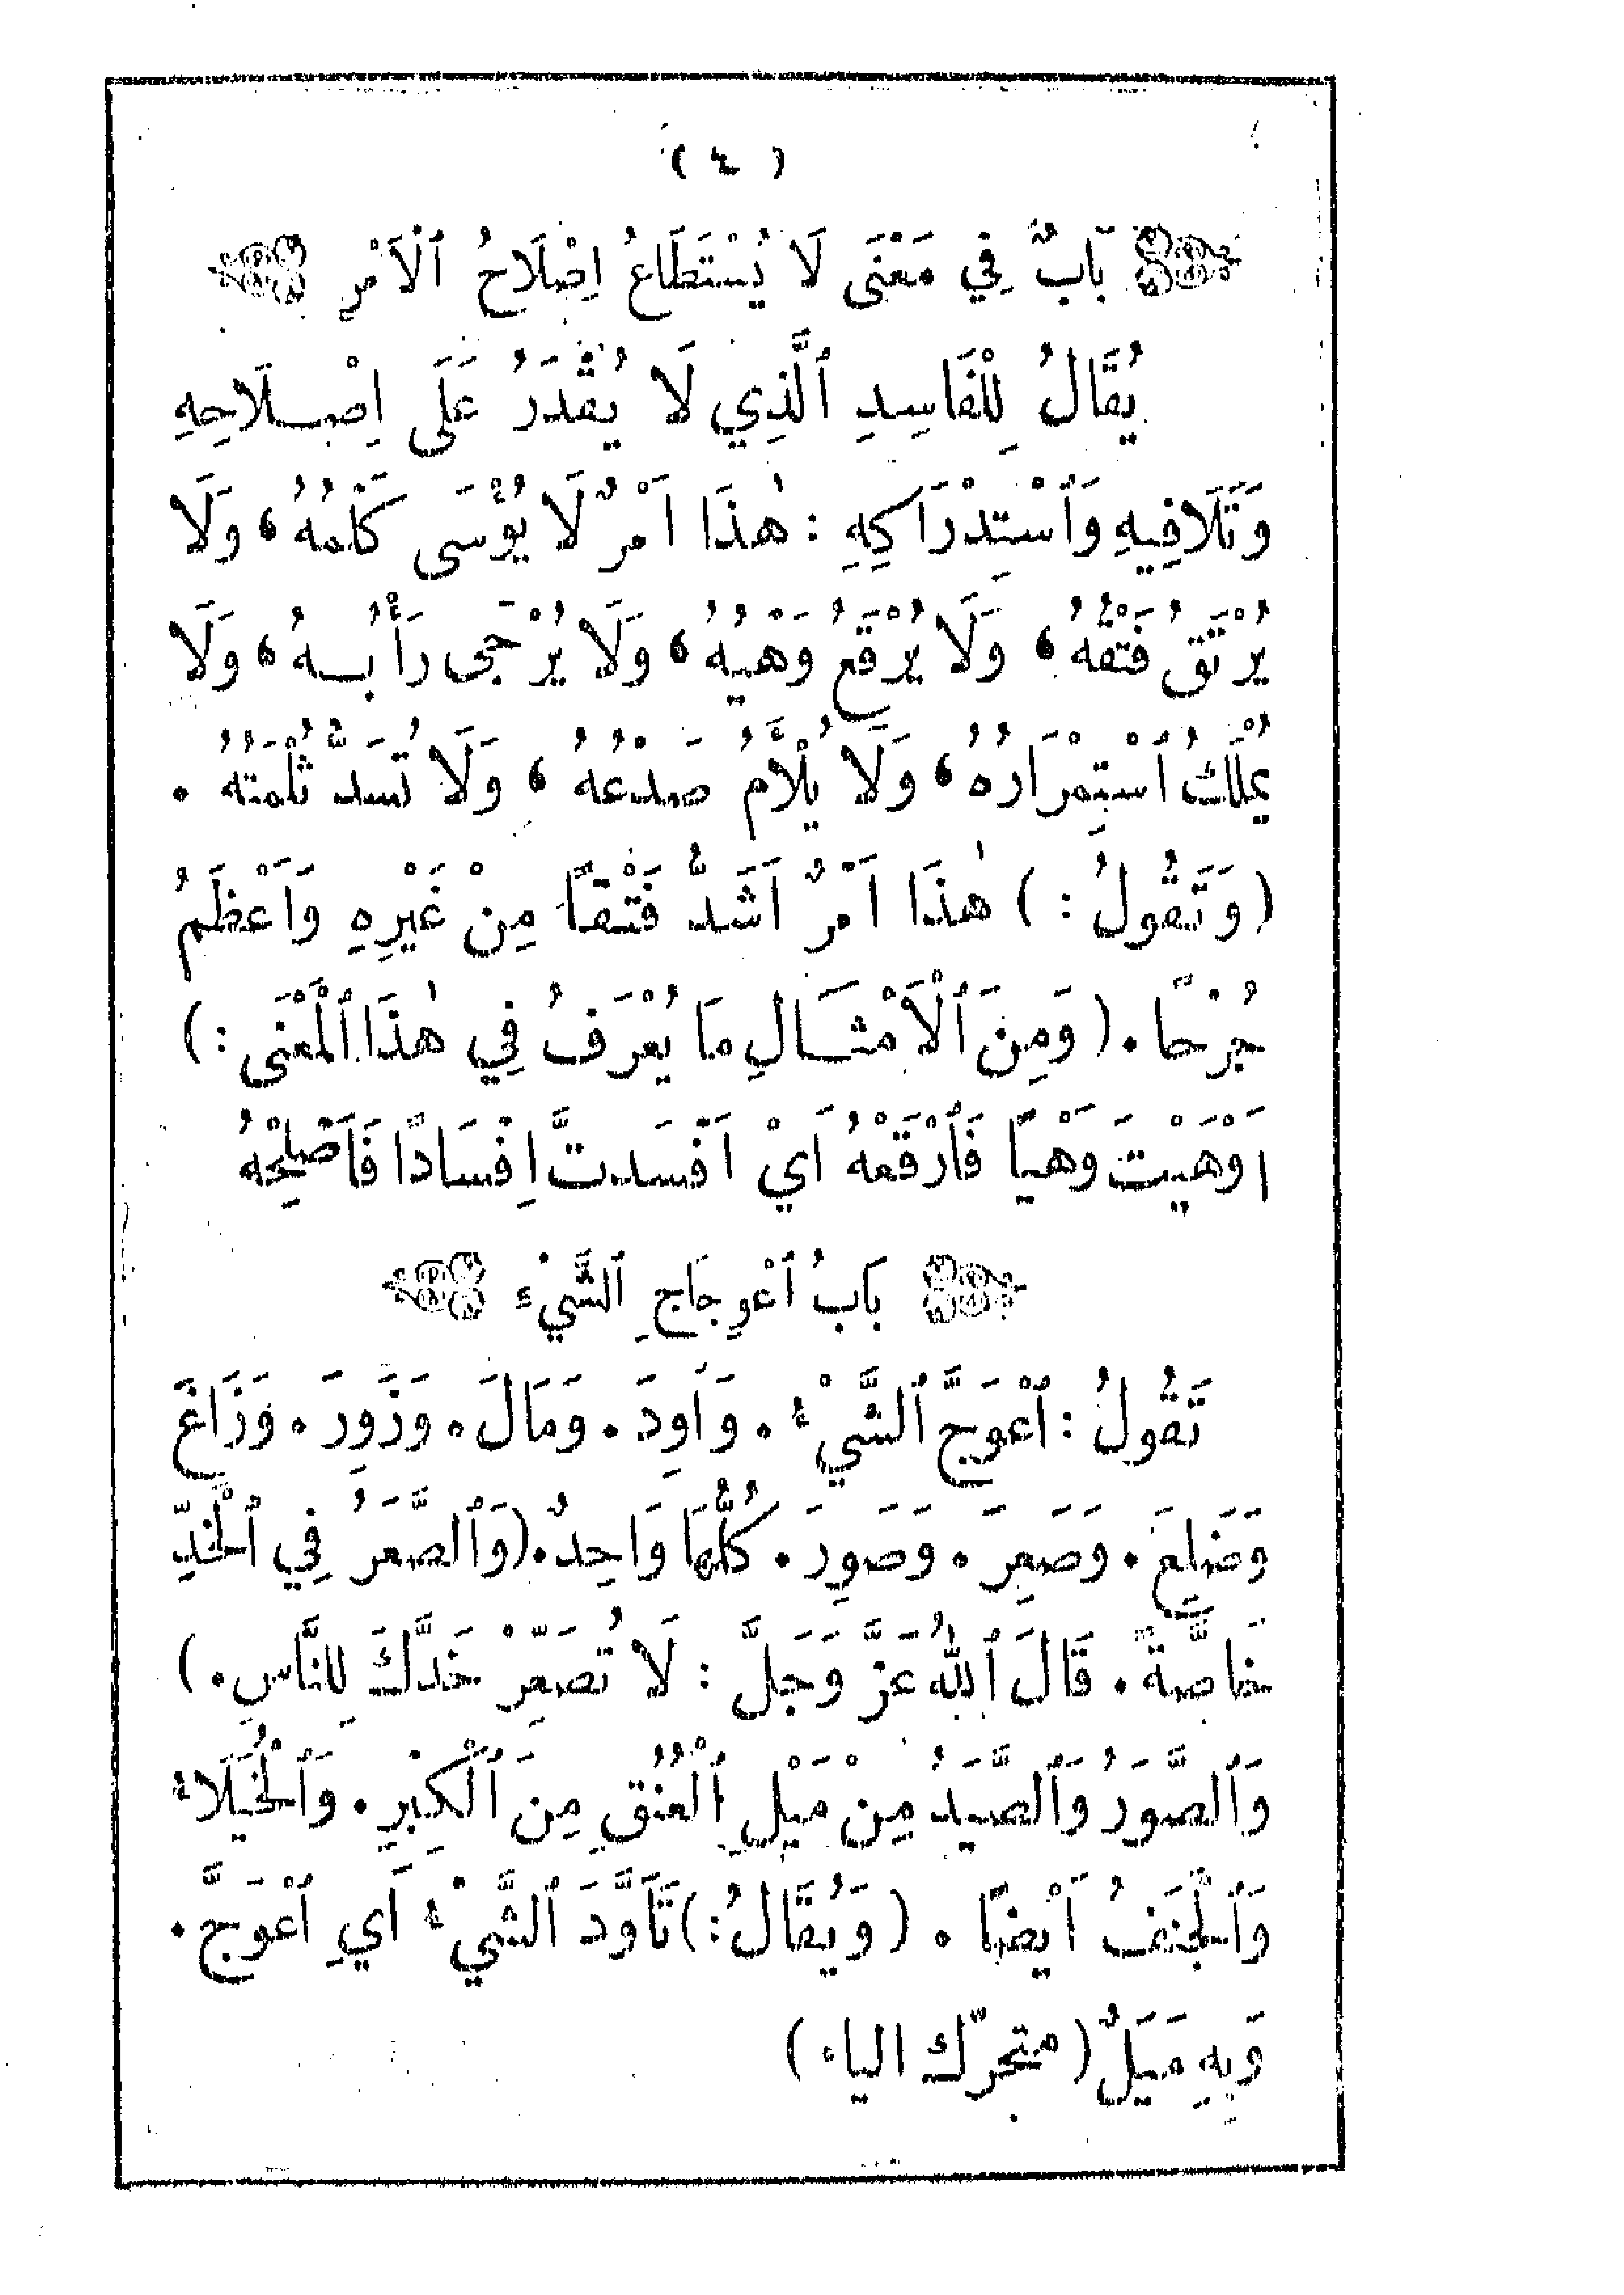 ( ٤ )
بَابٌ فِي مَعْنَى لَا يُسْتَطَاعُ اِصْلَاحُ ٱلْاَمْرِ
يُقَالُ لِلْفَاسِدِ ٱلَّذِي لَا يُقْدَرُ عَلَى اِصْـلَاحِهِ
وَتَلَافِيهِ وَٱسْتِدْرَاكِهِ : هٰذَا اَمْرٌ لَا يُؤْسَى كَلْمُهُ ، وَلَا
يُرْتَقُ فَتْقُهُ ، وَلَا يُرْقَعُ وَهْيُهُ ، وَلَا يُرْجَى رَأْبُـهُ ، وَلَا
يُمْلَكُ ٱسْتِمْرَارُهُ ، وَلَا يُلْأَمُ صَدْعُهُ ، وَلَا تُسَدُّ ثُلْمَتُهُ .
(وَتَقُولُ :) هٰذَا اَمْرٌ اَشَدُّ فَتْقًا مِنْ غَيْرِهِ وَاَعْظَمُ
جُرْحًا . (وَمِنَ ٱلْاَمْثَـالِ مَا يُعْرَفُ فِي هٰذَا ٱلْمَعْنَى :)
اَوْهَيْتَ وَهْيًا فَٱرْقَعْهُ اَيْ اَفْسَدتَّ اِفْسَادًا فَاَصْلِحْهُ
بَابُ ٱعْوِجَاجِ ٱلشَّيْءِ
تَقُولُ : ٱعْوَجَّ ٱلشَّيْءُ . وَاَوِدَ . وَمَالَ . وَزَوِرَ . وَزَاغَ
وَضَلِعَ . وَصَعِرَ . وَصَوِرَ . كُلُّهَا وَاحِدٌ . (وَٱلصَّعَرُ فِي ٱلْخَدِّ
خَاصَّةً . قَالَ ٱللهُ عَزَّ وَجَلَّ : لَا تُصَعِّرْ خَدَّكَ لِلنَّاسِ .)
وَٱلصَّوَرُ وَٱلصَّيَدُ مِنْ مَيْلِ ٱلْعُنُقِ مِنَ ٱلْكِبْرِ . وَٱلْخُيَلَاءُ
وَٱلْجَنَفُ اَيْضًا . (وَيُقَالُ :) تَاَوَّدَ ٱلشَّيْءُ اَيِ ٱعْوَجَّ .
وَبِهِ مَيَلٌ (متحرّك الياء)